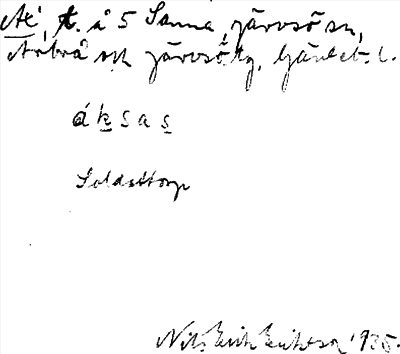 Ax, t. å 5 Sanna, Järvsö sn,
Arbrå och Järvsö tg, Gävleb. l.
áksas
Soldattorp
Nils Erik Eriksson 1935.